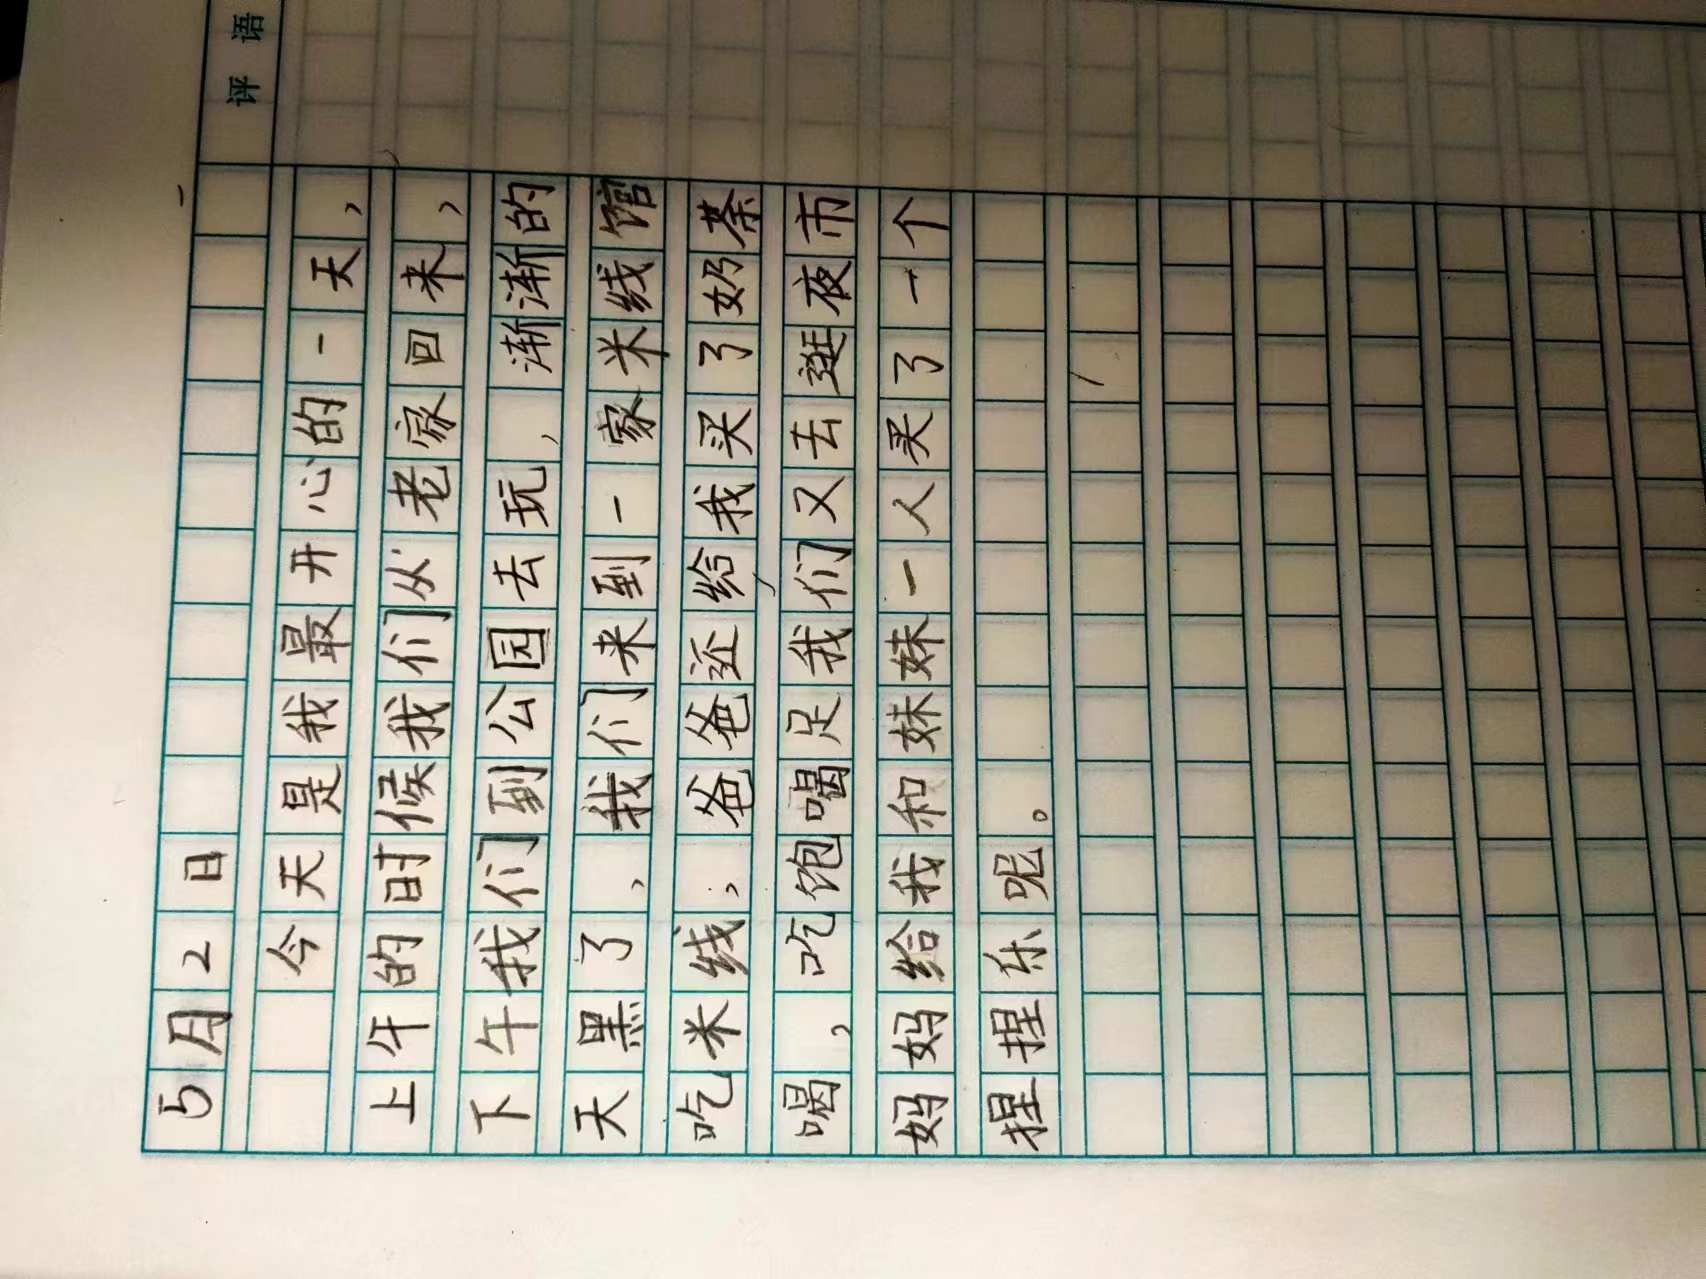 评语
5月2日
今天是我最开心的一天，
上午的时候我们从老家回来，
下午我们到公园去玩，渐渐的
天黑了，我们来到一家米线馆
吃米线，爸爸还给我买了奶茶
喝，吃饱喝足我们又去逛夜市
妈妈给我和妹妹一人买了一个
捏捏乐呢。